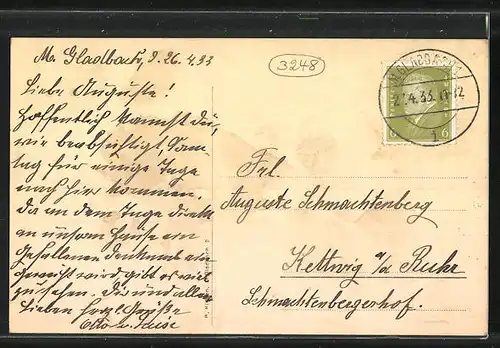 M. Gladbach, d. 26.4.33
Liebe Auguste!
Hoffentlich kannst du,
wie beabsichtigt Sam-
tag für einige Tage
nach hier kommen.
Da an dem Tage direkt
an unserm Hause ein
Gefallenen Denkmal ein-
geweiht wird gibt es viel
zu sehen. Dir und allen
Lieben herzl. Grüße
Otto u. Luise
3248
6 6
Frl.
Auguste Schmachtenberg
Kettwig a/d Ruhr
Schmachtenbergerhof.